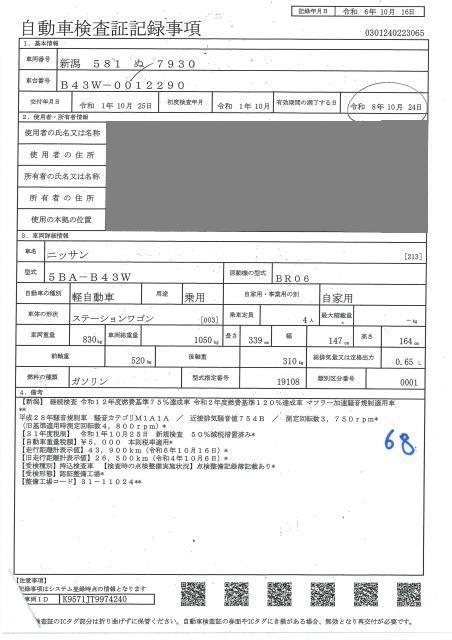 記録年月日 令和 6年10月16日
自動車検査証記録事項
0301240223065
1．基本情報
車両番号 新潟 581 ぬ 7930
車台番号 B43W-0012290
交付年月日 令和 1年10月25日 初度検査年月 令和 1年10月 有効期間の満了する日 令和 8年10月24日
2．使用者・所有者情報
使用者の氏名又は名称
使用者の住所
所有者の氏名又は名称
所有者の住所
使用の本拠の位置
3．車両詳細情報
車名 ニッサン [213]
型式 5BA-B43W 原動機の型式 BR06
自動車の種別 軽自動車 用途 乗用 自家用・事業用の別 自家用
車体の形状 ステーションワゴン [003] 乗車定員 4人 最大積載量 -kg
車両重量 830kg 車両総重量 1050kg 長さ 339cm 幅 147cm 高さ 164cm
前軸重 520kg 後軸重 310kg 総排気量又は定格出力 0.65 L
燃料の種類 ガソリン 型式指定番号 19108 類別区分番号 0001
4．備考
【新潟】 継続検査 令和12年度燃費基準75%達成車 令和2年度燃費基準120%達成車 マフラー加速騒音規制適用車
**
平成28年騒音規制車 騒音カテゴリM1A1A ／ 近接排気騒音値75dB ／ 測定回転数3，750rpm*
(旧基準適用時測定回転数4，800rpm)*
【31年度税制】 令和1年10月25日 新規検査 50%減税措置済み*
【自動車重量税額】¥5，000 本則税率適用*
【走行距離計表示値】43，900km（令和6年10月16日）*
【旧走行距離計表示値】26，500km（令和4年10月6日）*
【受検種別】持込検査車 【検査時の点検整備実施状況】点検整備記録簿記載あり*
【受検形態】認証整備工場*
【整備工場コード】31-11024**
68
【注意事項】
記録事項はシステム登録時点の情報となります
車両ID K9571JT9974240
検査証のICタグ部分は折り曲げずに保管ください。自動車検査証の券面やICタグにき損がある場合、無効となり再交付が必要です。